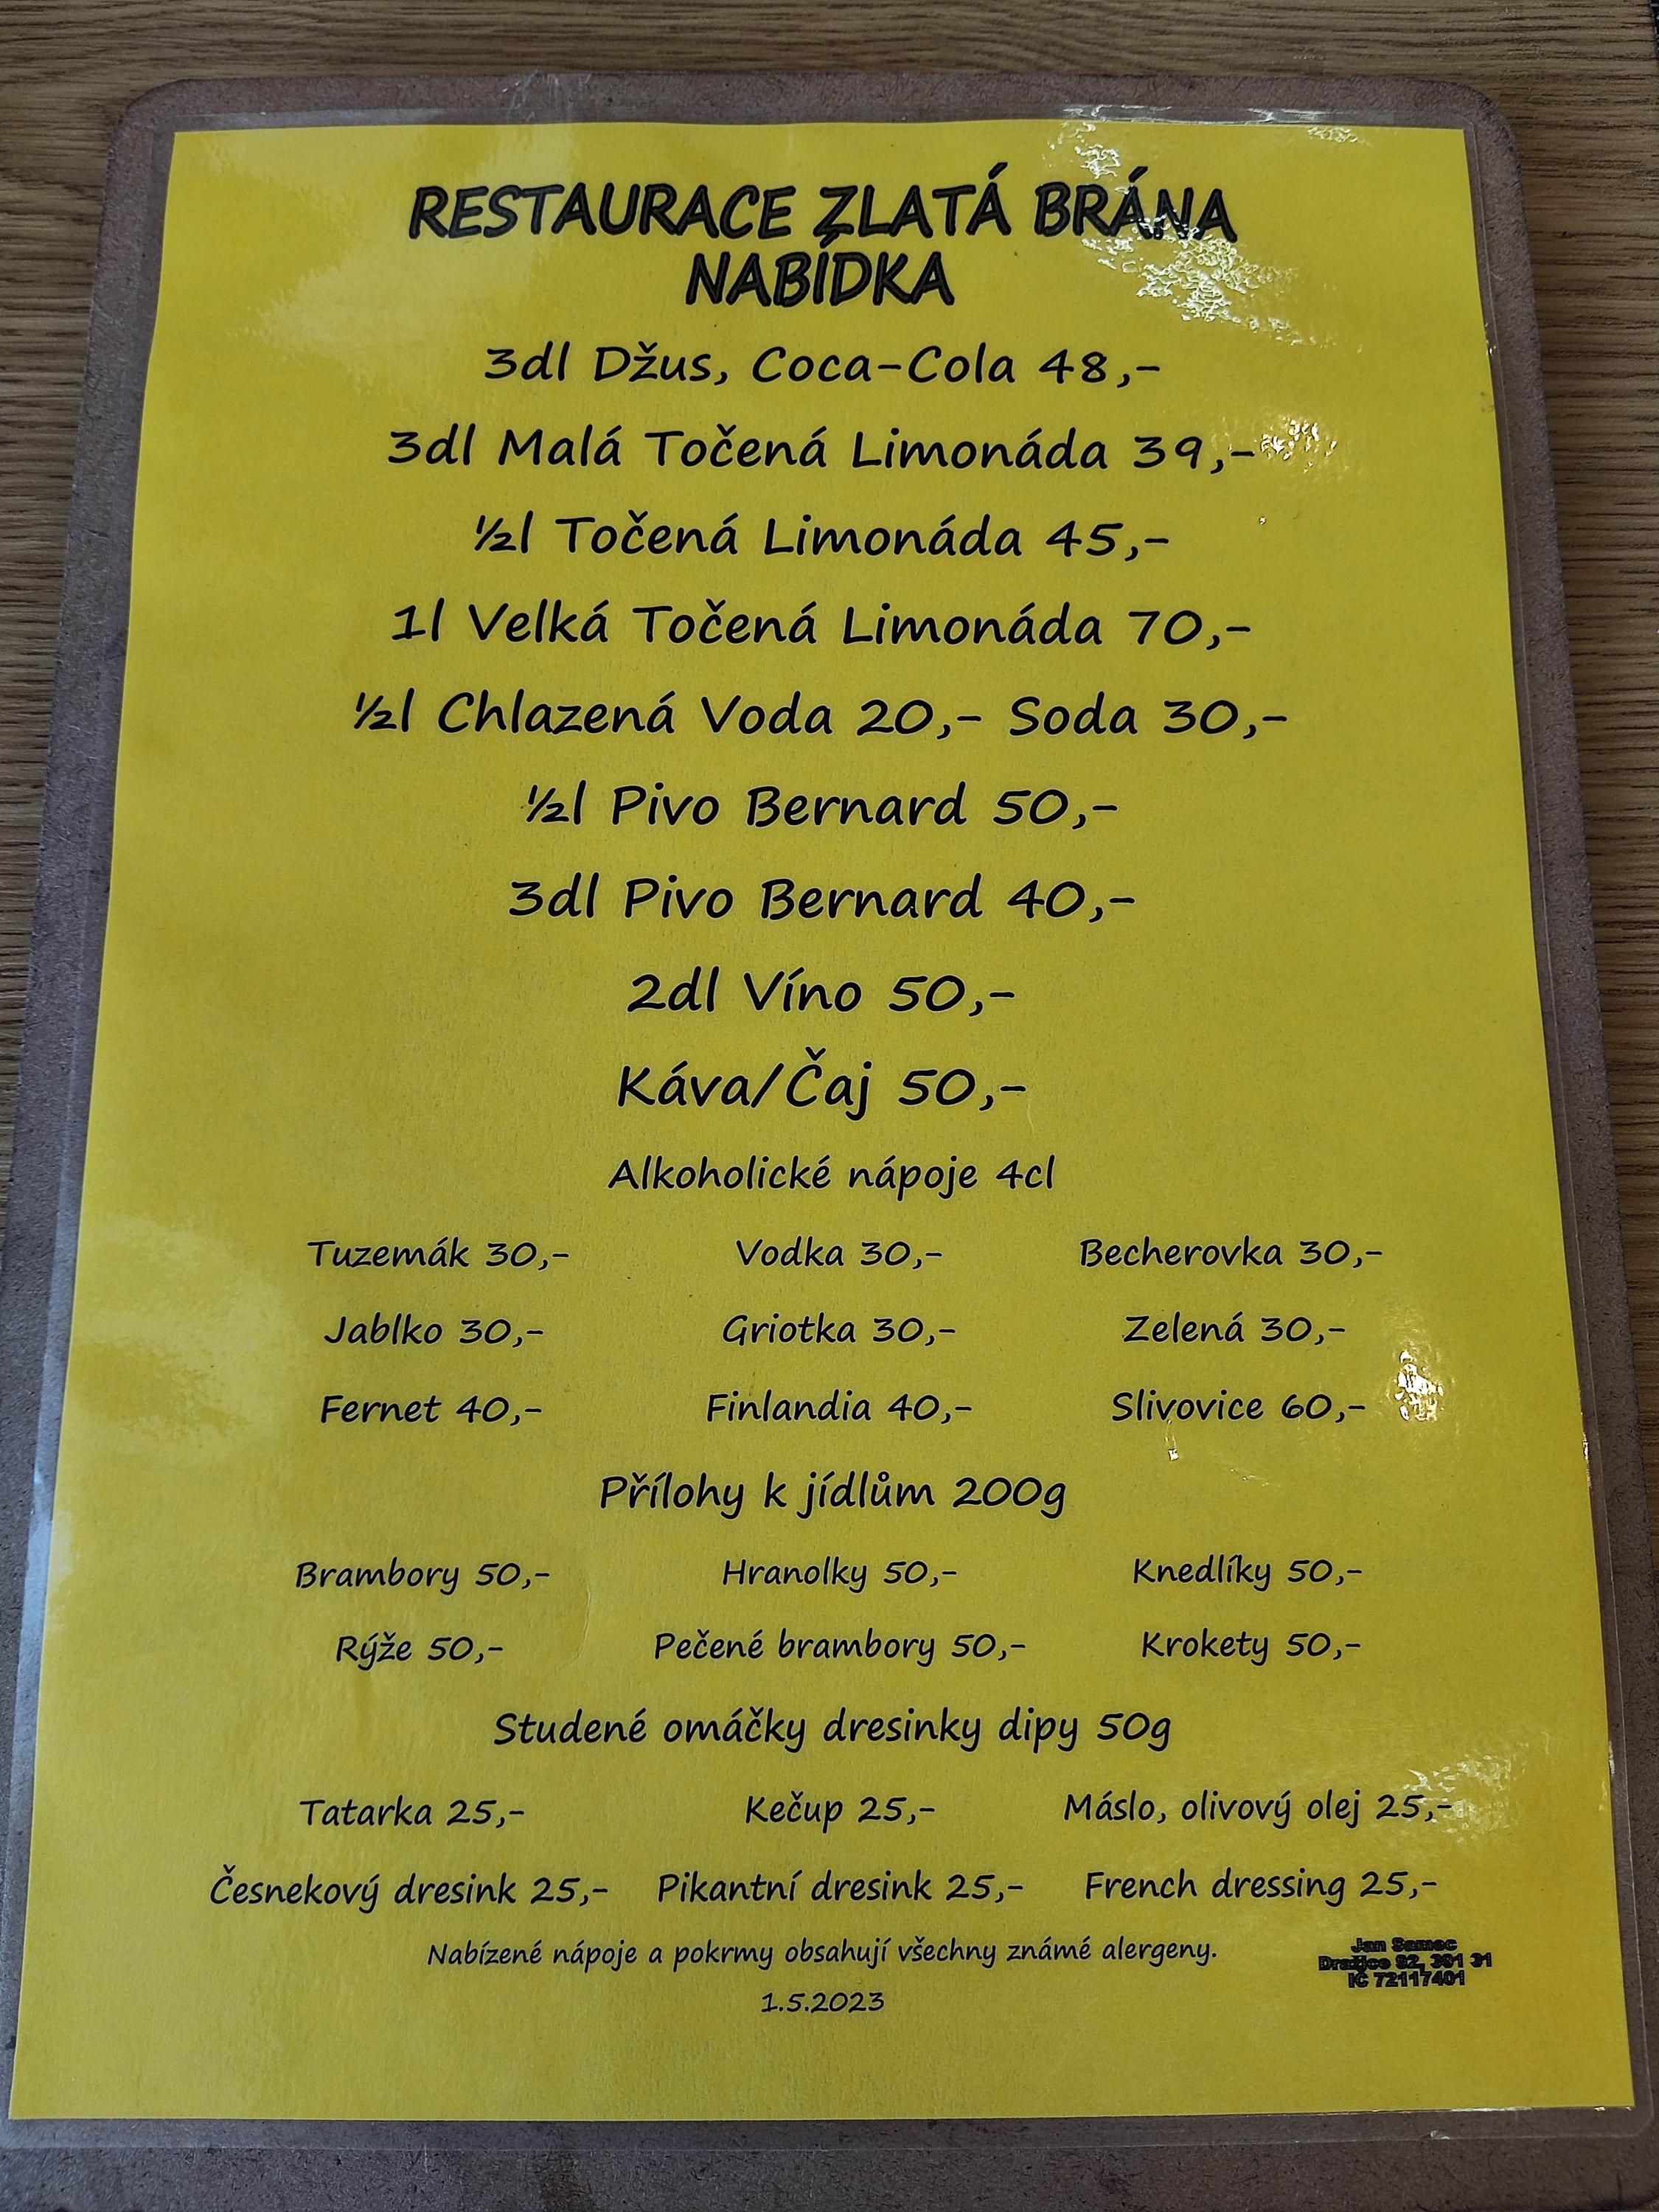 RESTAURACE ZLATÁ BRÁNA
NABÍDKA
3dl Džus, Coca-Cola 48,-
3dl Malá Točená Limonáda 39,-
½l Točená Limonáda 45,-
1l Velká Točená Limonáda 70,-
½l Chlazená Voda 20,- Soda 30,-
½l Pivo Bernard 50,-
3dl Pivo Bernard 40,-
2dl Víno 50,-
Káva/Čaj 50,-
Alkoholické nápoje 4cl
Tuzemák 30,- Vodka 30,- Becherovka 30,-
Jablko 30,- Griotka 30,- Zelená 30,-
Fernet 40,- Finlandia 40,- Slivovice 60,-
Přílohy k jídlům 200g
Brambory 50,- Hranolky 50,- Knedlíky 50,-
Rýže 50,- Pečené brambory 50,- Krokety 50,-
Studené omáčky dresinky dipy 50g
Tatarka 25,- Kečup 25,- Máslo, olivový olej 25,-
Česnekový dresink 25,- Pikantní dresink 25,- French dressing 25,-
Nabízené nápoje a pokrmy obsahují všechny známé alergeny.
1.5.2023
Jan Samec
Dražice 82, 391 31
IČ 72117401